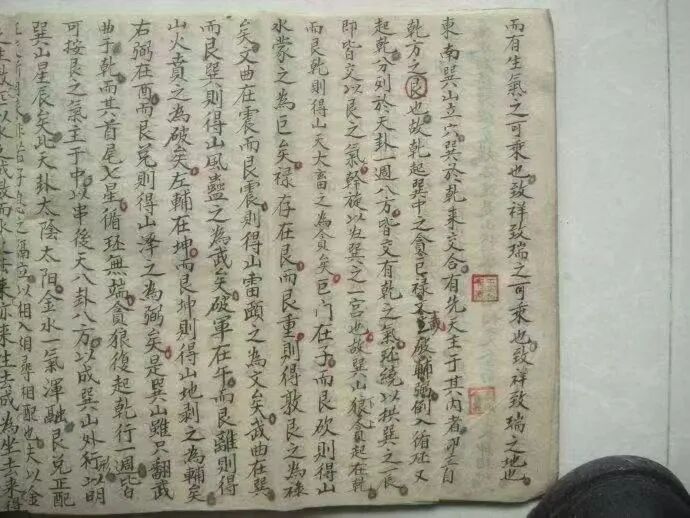 而有生氣之可乘也致祥致瑞之可乘也致祥致瑞之地也
東南巽山立穴巽於乾來交合有先天主于其内者即立自
乾方之艮也故乾起巽中之貪巨祿文武破輔弼倒入循环又
起乾分列於天卦一週八方皆交有乾之氣环繞以拱巽之一辰
即皆交以艮之氣幹旋以為巽之一宮也故巽山狼貪起在乾
而艮乾則得山天大畜之為貪矣巨门在子而艮砍則得山
水蒙之為巨矣禄存在艮而艮重則得敦艮之為禄
矣文曲在震而艮震則得山雷頤之為文矣武曲在巽
而艮巽則得山風蠱之為武矣破軍在午而艮離則得
山火賁之為破矣左輔在坤而艮坤則得山地剥之為輔矣
右弼在酉而艮兑則得山泽之為弼矣是巽山雖只翻武
曲于乾而其首尾七星循环無端貪狼復起乾行一週皆
可按艮之氣主于中以串後天八卦八方以成巽山外行以明
巽山星辰矣此天卦太陰太阳金水一氣渾融艮兑正配
之滴位以相入相尋相配也天以金
來生去成為坐去來得